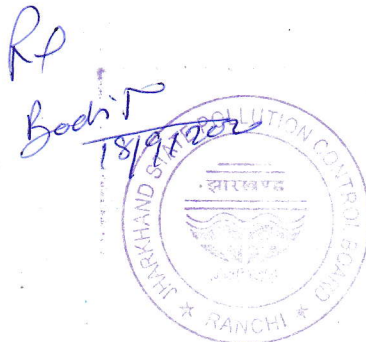 Rp
18/9/202
JHARKHAND STATE POLLUTION CONTROL BOARD
झारखण्ड
★ RANCHI ★